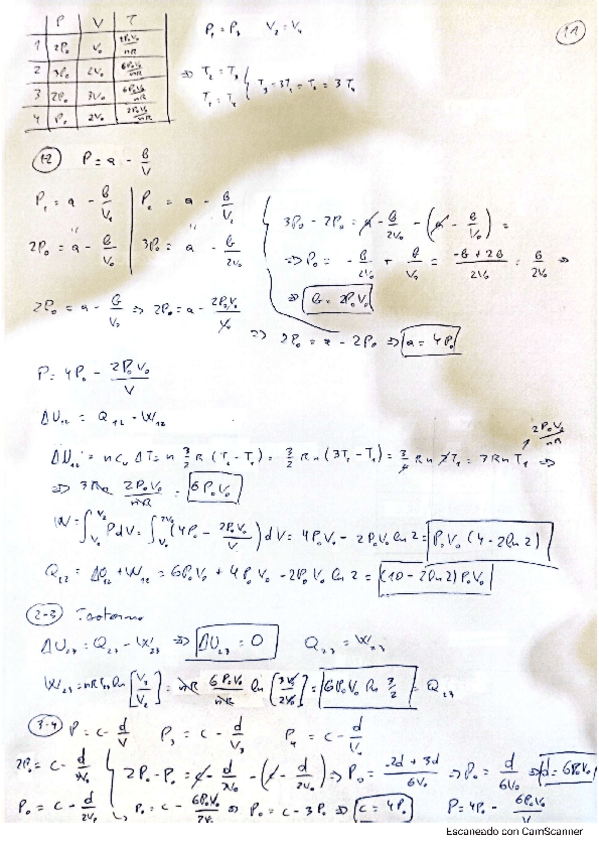 P V T
1 2P₀ V₀ 2P₀V₀/nR
2 3P₀ 2V₀ 6P₀V₀/nR
3 2P₀ 3V₀ 6P₀V₀/nR
4 P₀ 2V₀ 2P₀V₀/nR
P₁ = P₃ V₂ = V₄
⇒ T₂ = T₃
T₁ = T₄
12 P = a - B/V
P₁ = a - B/V₁ P₂ = a - B/V₂
2P₀ = a - B/V₀ 3P₀ = a - B/2V₀
3P₀ - 2P₀ = a - B/2V₀ - (a - B/V₀) =
⇒ P₀ = - B/2V₀ + B/V₀ = (-B + 2B)/2V₀ = B/2V₀ ⇒
⇒ B = 2P₀V₀
2P₀ = a - B/V₀ ⇒ 2P₀ = a - 2P₀V₀/V₀
⇒ 2P₀ = a - 2P₀ ⇒ a = 4P₀
P = 4P₀ - 2P₀V₀/V
ΔU₁₂ = Q₁₂ - W₁₂
2P₀V₀/nR
ΔU₁₂ = n cᵥ ΔT = n 3/2 R (T₂ - T₁) = 3/2 R n (3T₁ - T₁) = 3/2 R n 2T₁ = 3RnT₁ ⇒
⇒ 3Rn 2P₀V₀/nR = 6P₀V₀
W = ∫ PdV = ∫ (4P₀ - 2P₀V₀/V) dV = 4P₀V₀ - 2P₀V₀ ln 2 = P₀V₀ (4 - 2ln2)
Q₁₂ = ΔU₁₂ + W₁₂ = 6P₀V₀ + 4P₀V₀ - 2P₀V₀ ln 2 = (10 - 2ln2) P₀V₀
2-3 Isotermo
ΔU₂₃ = Q₂₃ - W₂₃ ⇒ ΔU₂₃ = 0 Q₂₃ = W₂₃
W₂₃ = nR ln[V₃/V₂] = nR 6P₀V₀/nR ln[3V₀/2V₀] = 6P₀V₀ ln 3/2 = Q₂₃
3-4 P = c - d/V P₃ = c - d/V₃ P₄ = c - d/V₄
2P₀ = c - d/3V₀ 2P₀ - P₀ = c - d/3V₀ - (c - d/2V₀) ⇒ P₀ = (-2d + 3d)/6V₀ ⇒ P₀ = d/6V₀ ⇒ d = 6P₀V₀
P₀ = c - d/2V₀ P₀ = c - 6P₀V₀/2V₀ ⇒ P₀ = c - 3P₀ ⇒ c = 4P₀ P = 4P₀ - 6P₀V₀/V
Escaneado con CamScanner